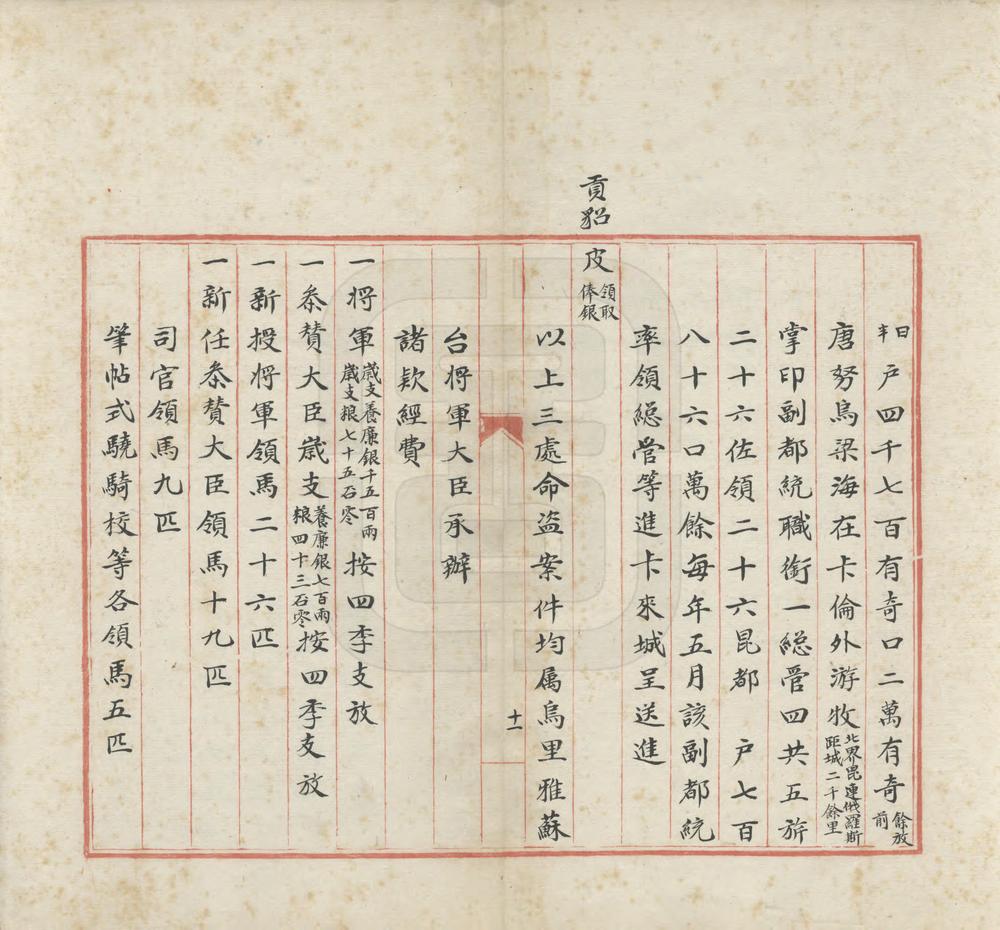 日
戶四千七百有奇口二萬有奇餘放前
唐努烏梁海在卡倫外游牧北界毘連俄羅斯距城二千餘里
掌印副都統職銜一總管四共五旂
二十六佐領二十六昆都　戶七百
八十六口萬餘每年五月該副都統
率領總管等進卡來城呈送進
貢貂皮領取俸銀
以上三處命盜案件均属烏里雅蘇
十一
台将軍大臣承辦
諸欵經費
一将軍歲支養廉銀千五百兩歲支粮七十五石零按四季支放
一叅贊大臣歲支養廉銀七百兩粮四十三石零按四季支放
一新授将軍領馬二十六匹
一新任叅贊大臣領馬十九匹
司官領馬九匹
筆帖式驍騎校等各領馬五匹